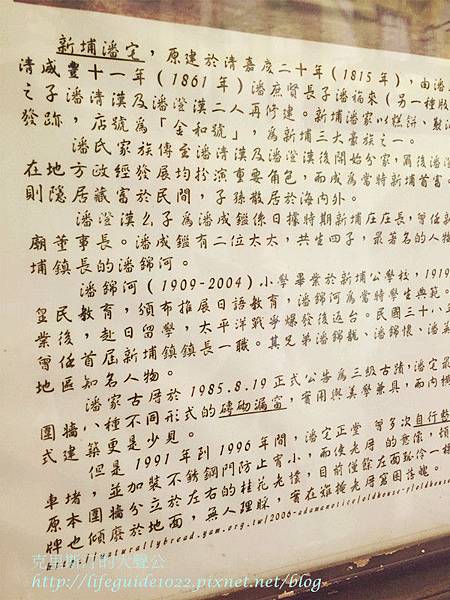 新埔潘宅，原建於清嘉慶二十年(1815年)，由潘
清咸豐十一年(1861年)潘庶賢長子潘福來(另一種版
之子潘清漢及潘澄漢二人再修建。新埔潘家以糕餅、
發跡，店號為「金和號」，為新埔三大豪族之一。
潘氏家族傳至潘清漢及潘澄漢後開始分家，爾後潘澄
在地方政經發展均扮演重要角色，而成為當時新埔首富。
則隱居藏富於民間，子孫散居於海內外。
潘澄漢么子為潘成鑑係日據時期新埔庄庄長，曾任新
廟董事長。潘成鑑有二位太太，共生四子，最著名的人物
埔鎮長的潘錦河。
潘錦河(1909-2004)小學畢業於新埔公學校，1919
皇民教育，頒布推展日語教育，潘錦河為當時學生典範。
業後，赴日留學，太平洋戰爭爆發後返台。民國三十八
曾任首屆新埔鎮鎮長一職。其兄弟潘錦魏、潘錦懷、潘美
地區知名人物。
潘家古厝於1985.8.19正式公告為三級古蹟，潘宅最
圍牆，八種不同形式的磚砌漏窗，實用與美學兼具，而內
式建築更是少見。
但是1991年到1996年間，潘宅正堂曾多次自行整
車堵，並加裝不銹鋼門防止宵小，而使老厝的意像，
原本圍牆分立於左右的桂花老欉，目前僅餘左面
牌也傾廢於地面，無人理睬，實在
克里斯力的大聲公
http://lifeguide1022.pixnet.net/blog